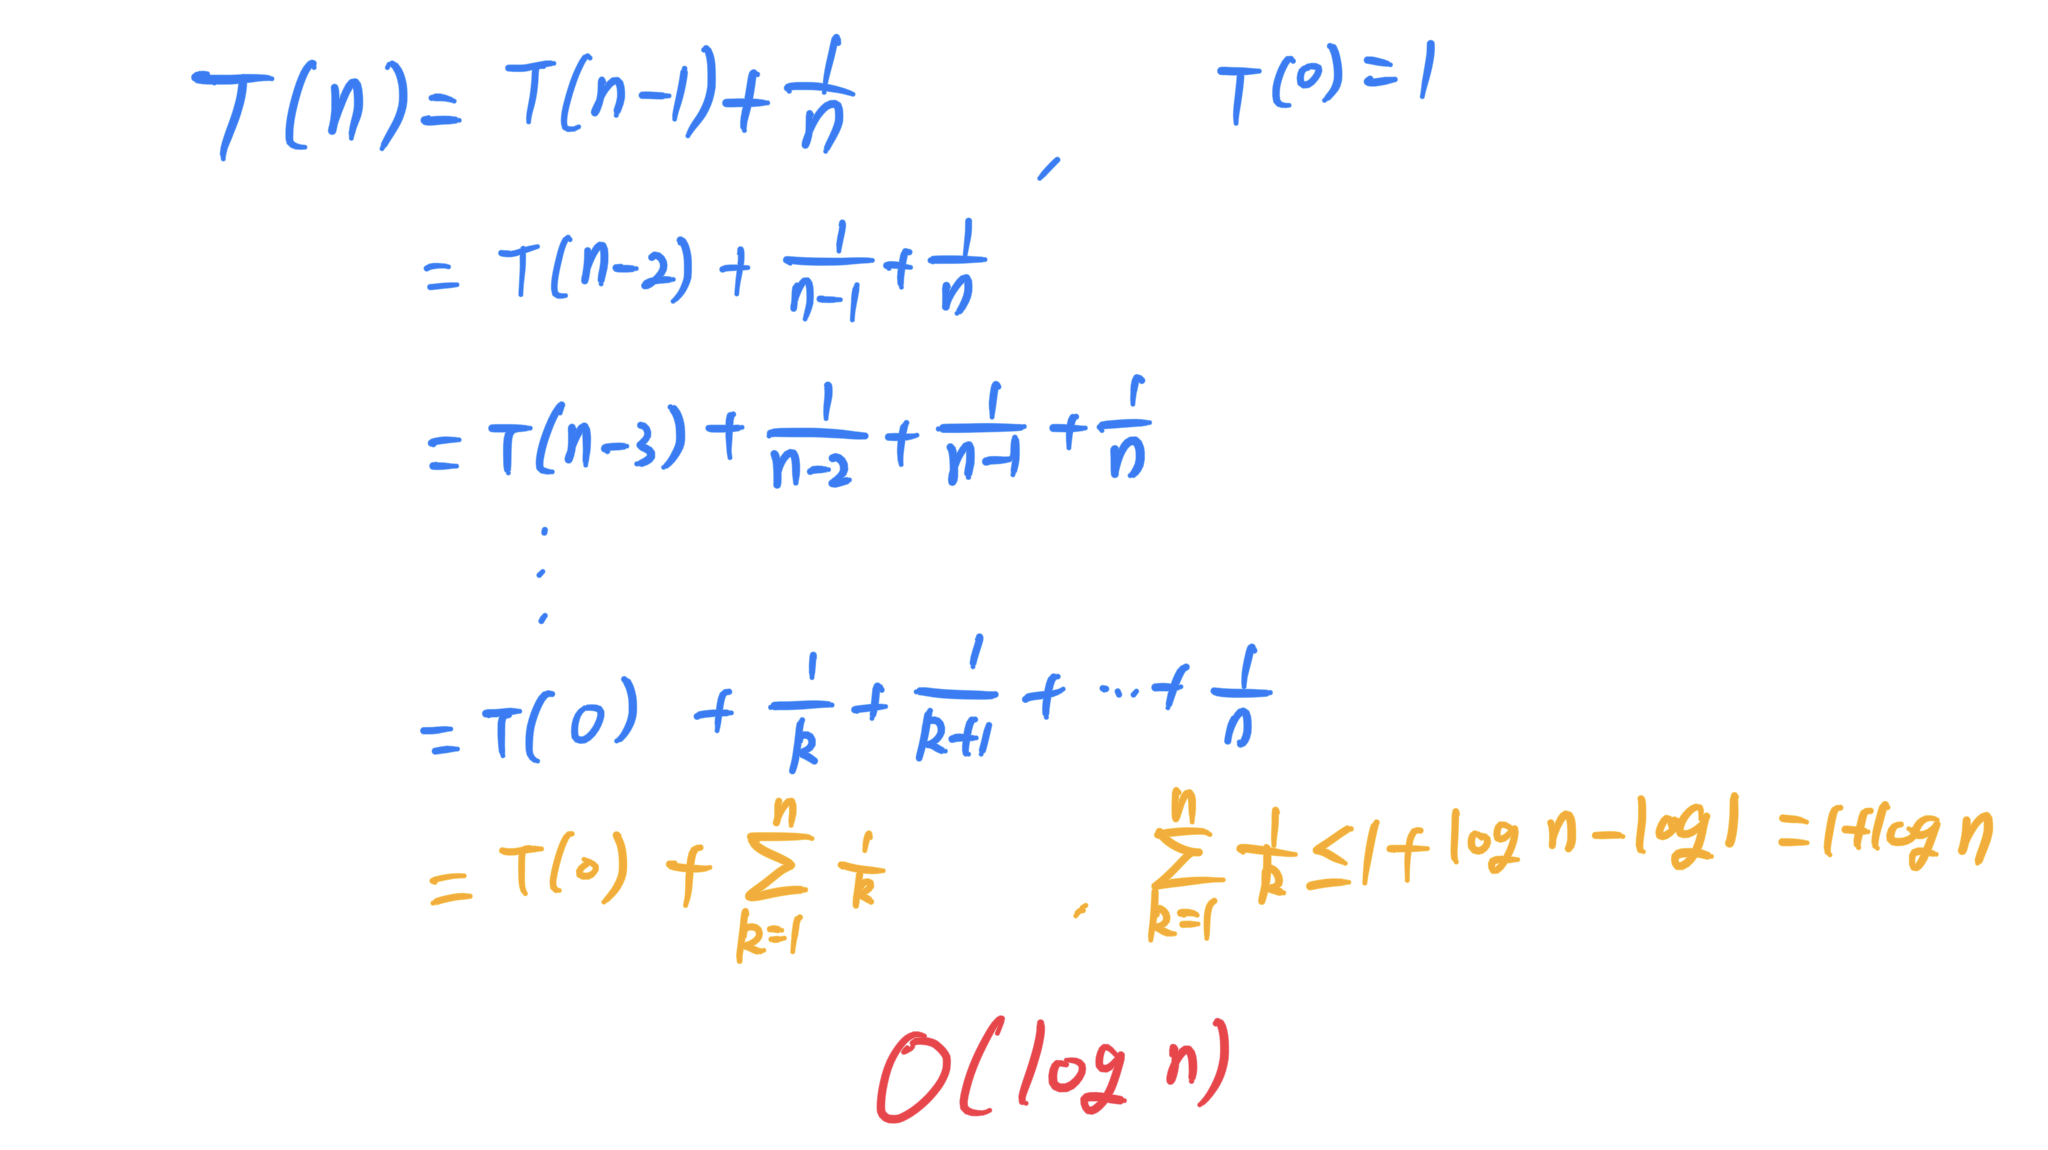 T(n) = T(n-1) + 1/n , T(0) = 1
= T(n-2) + 1/(n-1) + 1/n
= T(n-3) + 1/(n-2) + 1/(n-1) + 1/n
⋮
= T(0) + 1/k + 1/(k+1) + ... + 1/n
= T(0) + ∑_{k=1}^{n} 1/k . ∑_{k=1}^{n} 1/k ≤ 1 + log n - log 1 = 1 + log n
O(log n)